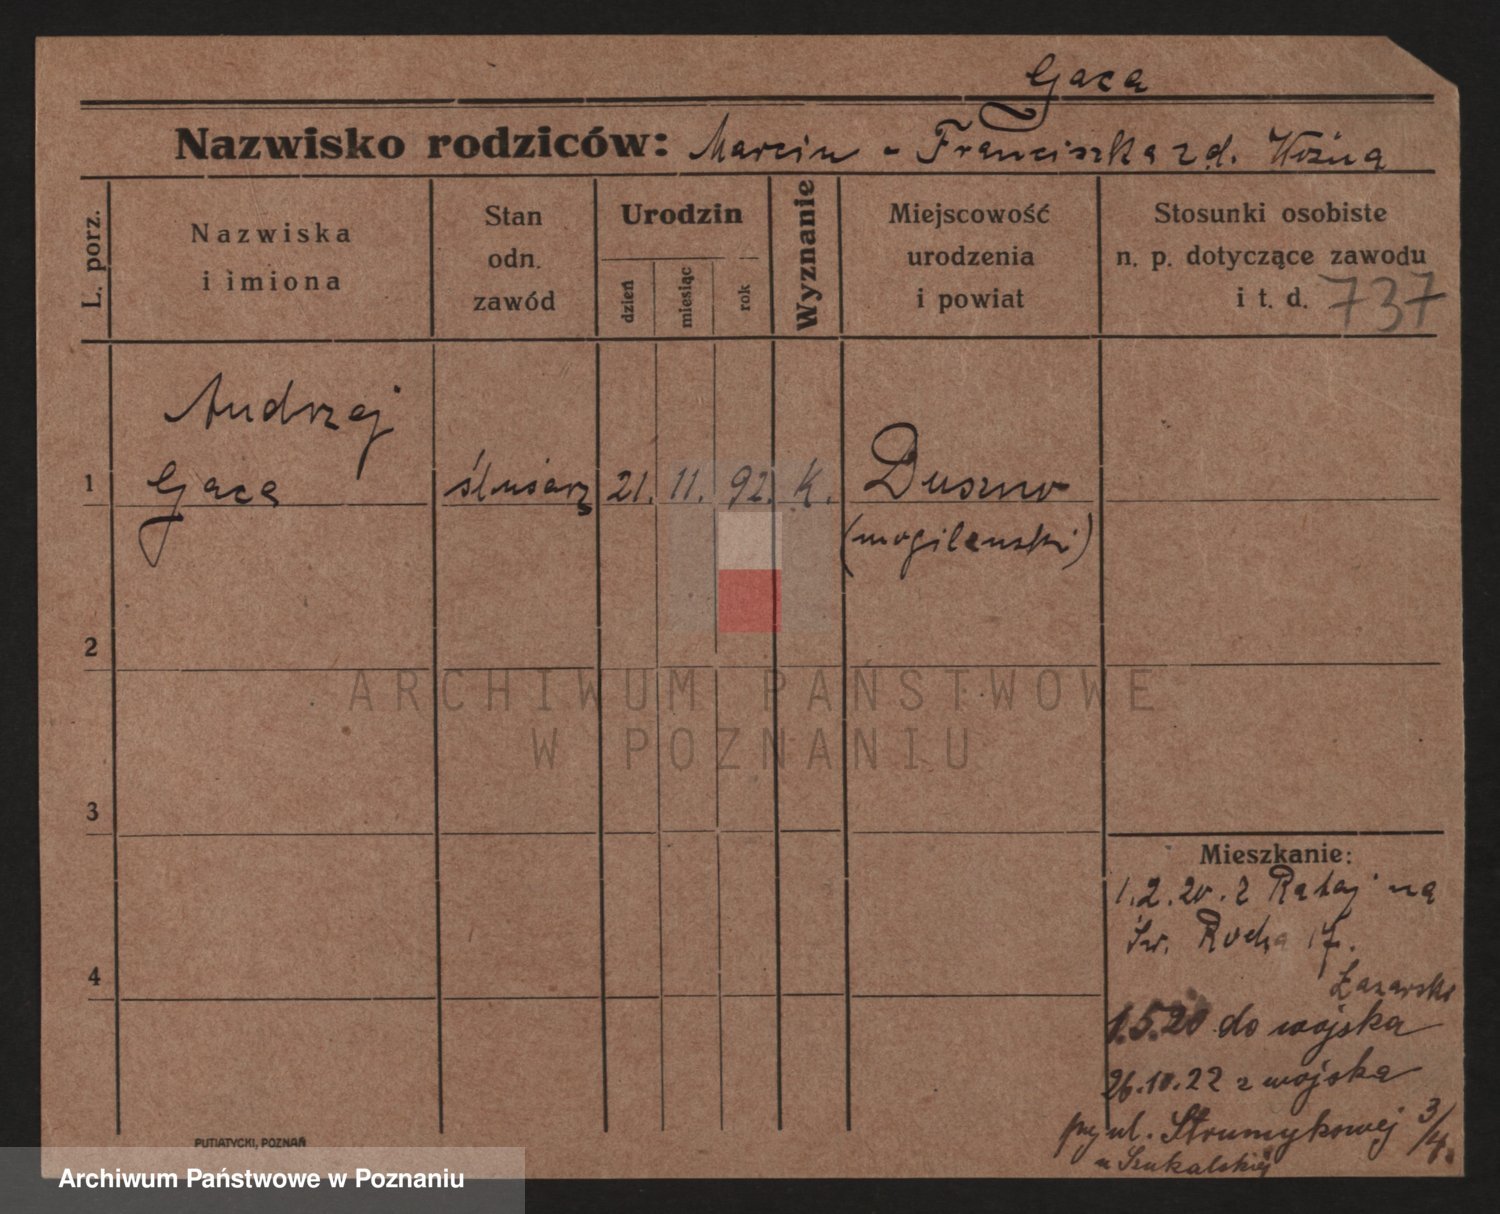 Gaca
Nazwisko rodziców: Marcin - Franciszka z d. Woźna
L. porz.
Nazwiska
i imiona
Stan
odn.
zawód
Urodzin
dzień
miesiąc
rok
Wyznanie
Miejscowość
urodzenia
i powiat
Stosunki osobiste
n. p. dotyczące zawodu
i t. d. 737
Andrzej
1 Gaca ślusarz 21. 11. 92. k. Duszno
(mogilenski)
2
ARCHIWUM PAŃSTWOWE
W POZNANIU
3
Mieszkanie:
1.2.20. z Rataj na
Św. Rocha 17.
4
1.5.20 do wojska
26.10.22 z wojska
przy ul. Strumykowej 3/4.
u Szukalskiej
PUTIATYCKI, POZNAŃ
Archiwum Państwowe w Poznaniu